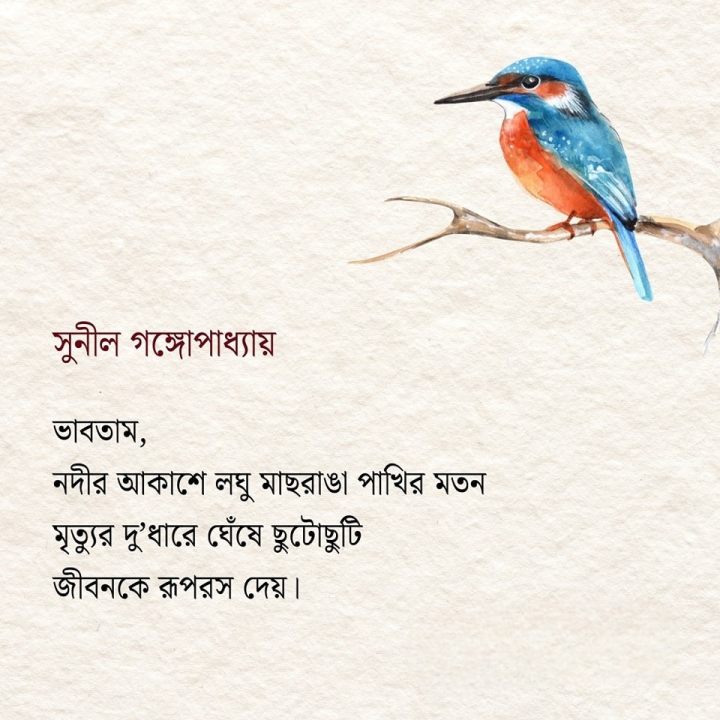 সুনীল গঙ্গোপাধ্যায়
ভাবতাম,
নদীর আকাশে লঘু মাছরাঙা পাখির মতন
মৃত্যুর দু’ধারে ঘেঁষে ছুটোছুটি
জীবনকে রূপরস দেয়।